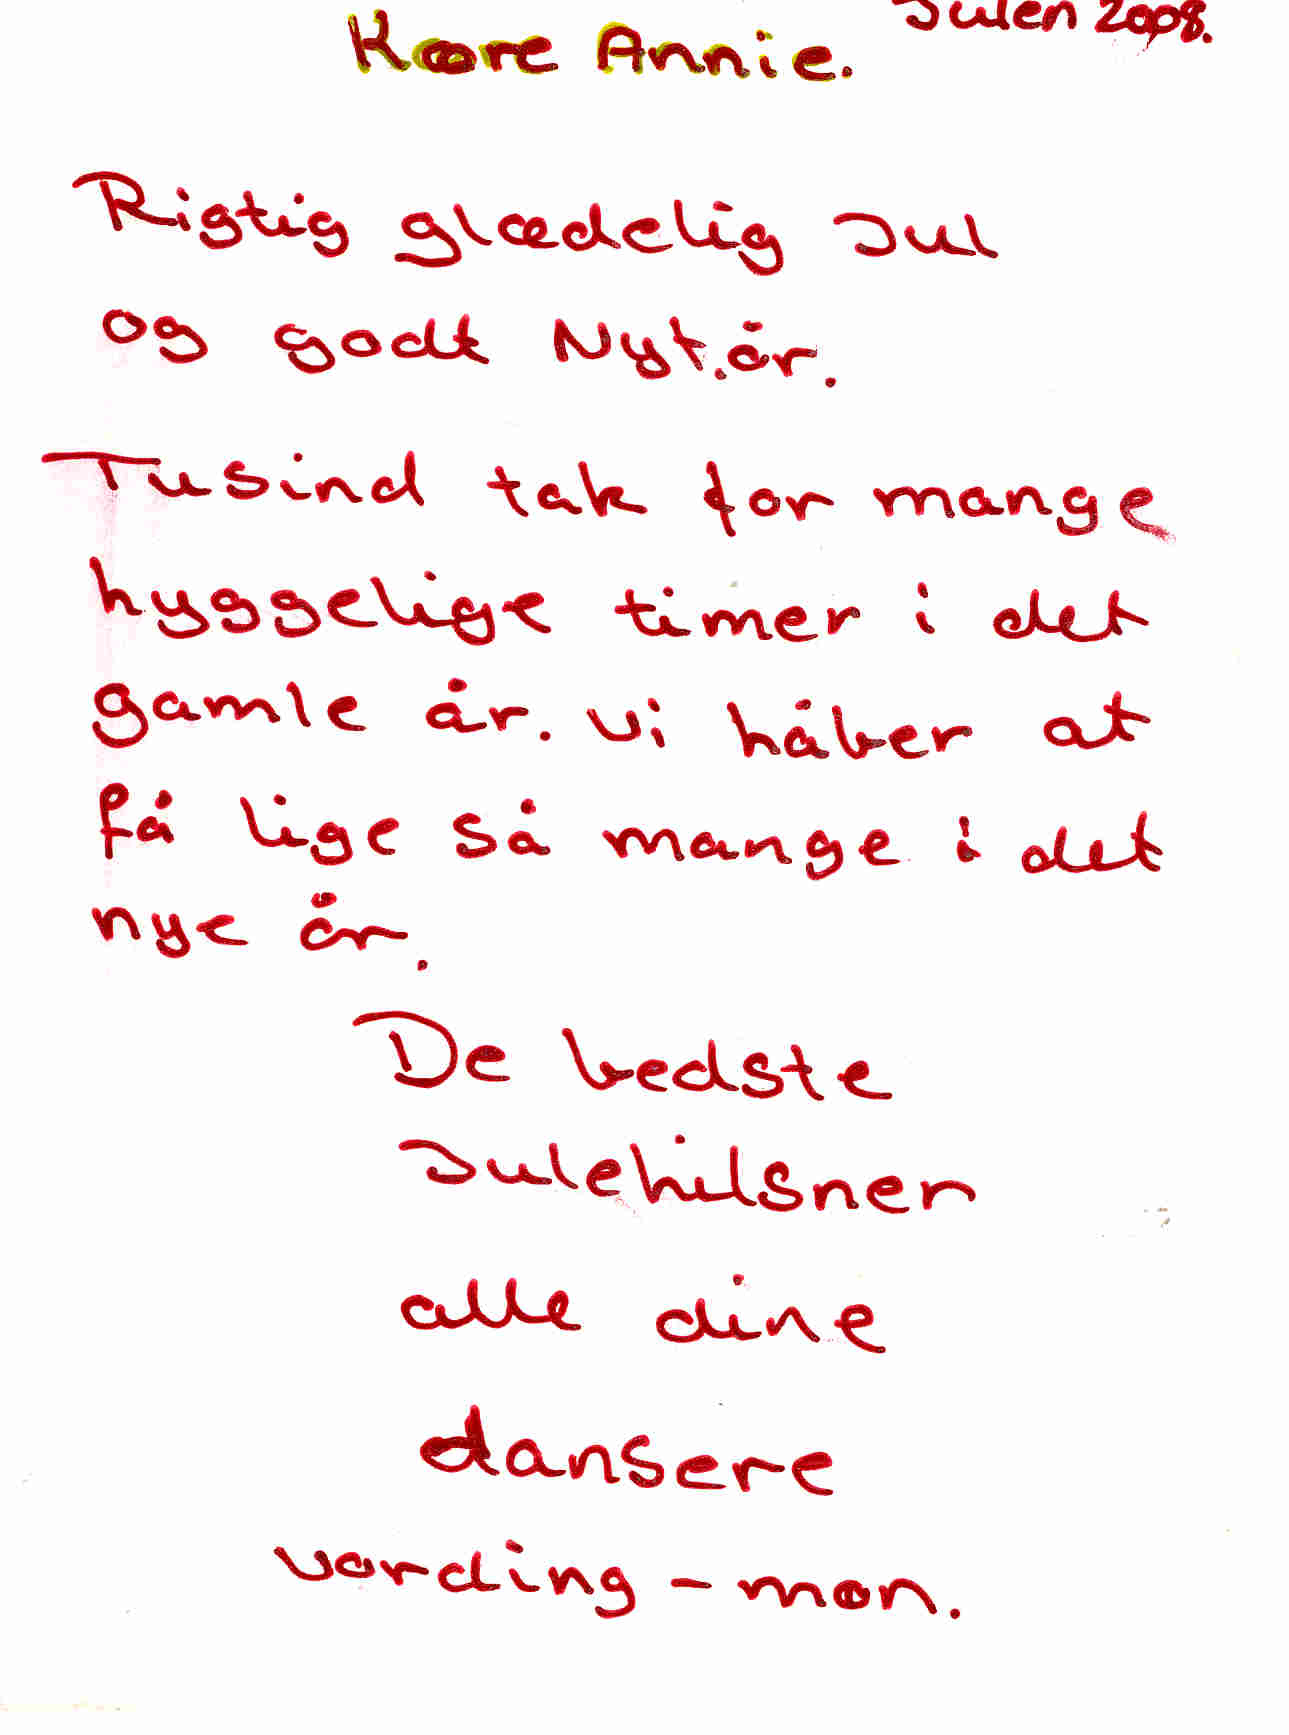 Julen 2008.
Kære Annie.
Rigtig glædelig Jul
og godt Nyt.år.
Tusind tak for mange
hyggelige timer i det
gamle år. vi håber at
få lige så mange i det
nye år.
De bedste
Julehilsner
alle dine
dansere
vording - møn.